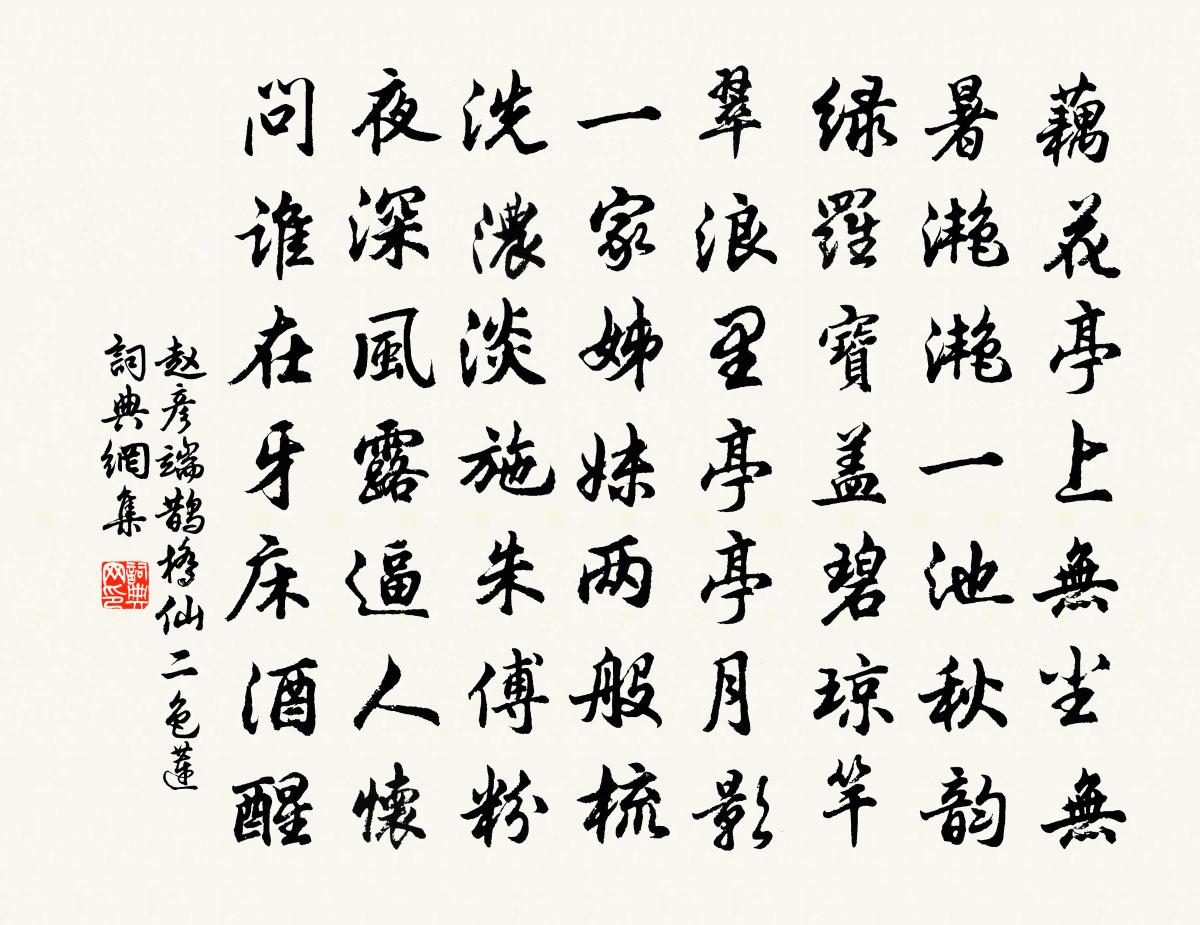 藕花亭上無尘無
暑滟滟一池秋韵
绿羅寶盖碧琼竿
翠浪里亭亭月影
一家姊妹两般梳
洗濃淡施朱傅粉
夜深風露逼人懷
問谁在牙床酒醒
赵彦端鹊橋仙二色蓮
詞典網集
詞典网印